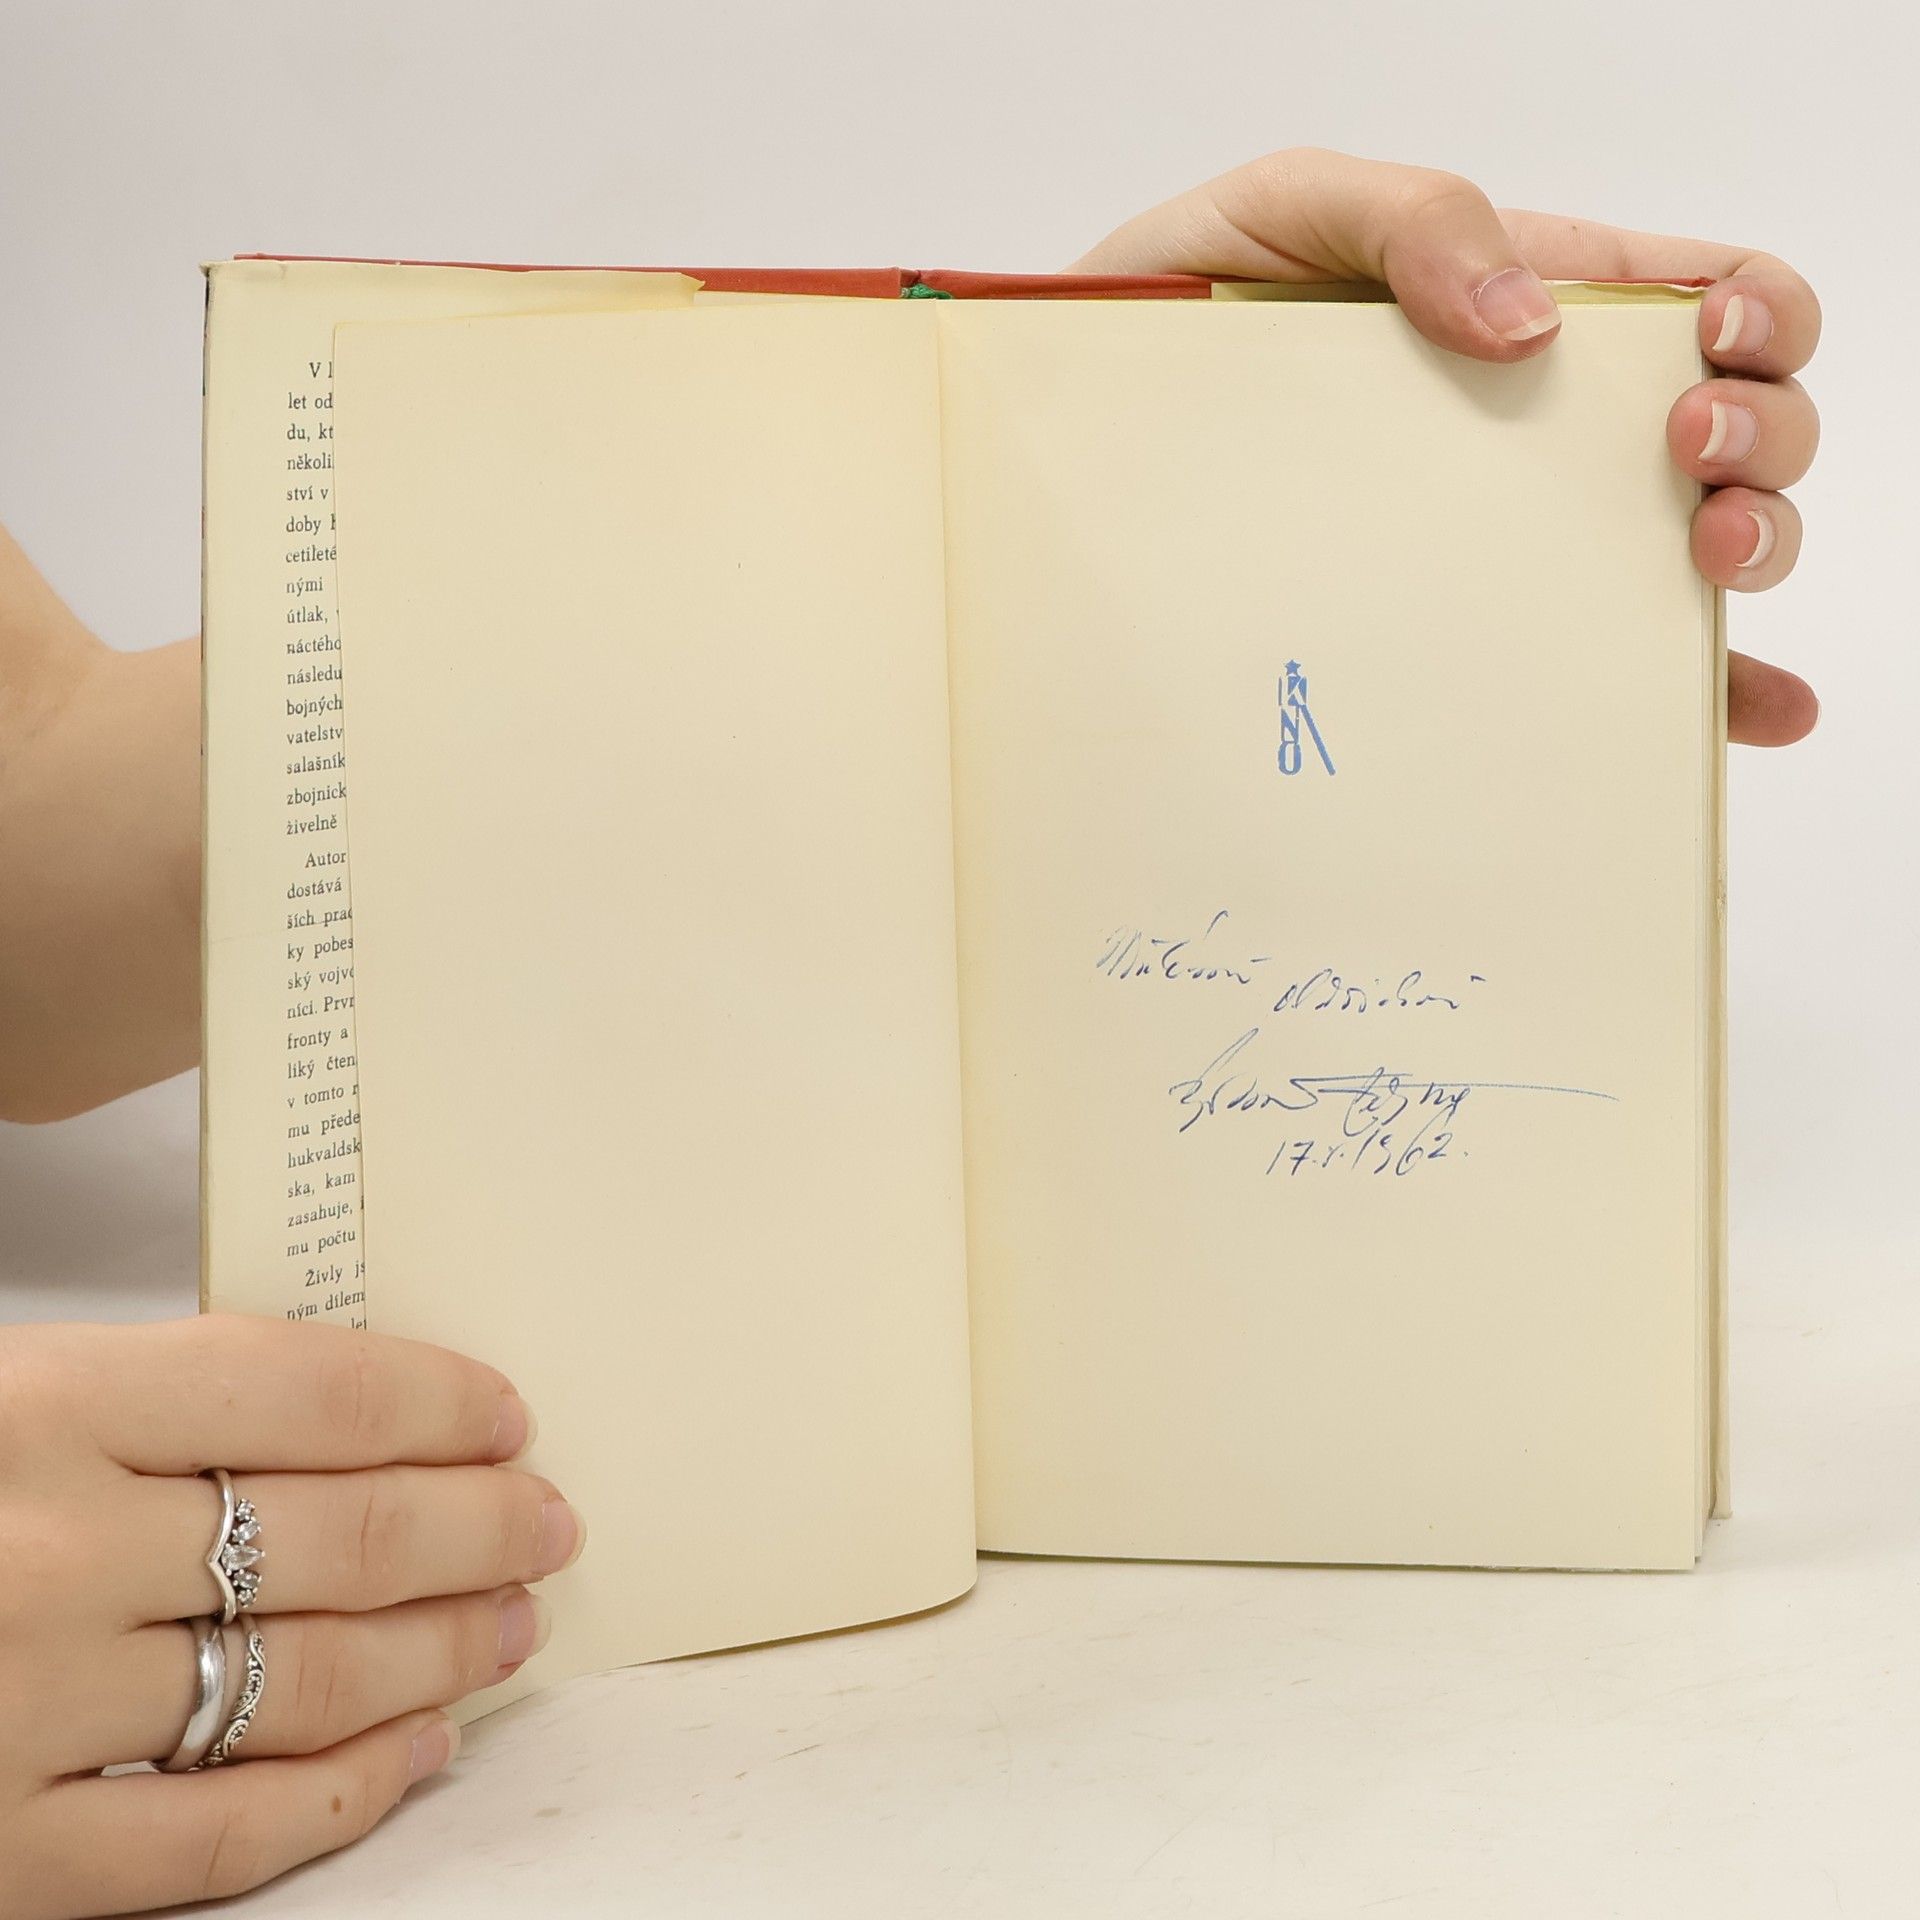 V l
let od
du, kt
několi
ství v
doby
cetileté
nými
útlak,
náctého
následu
bojných
vatelstv
salašník
zbojnick
živelně
Autor
dostává
ších prac
ky pobes
ský vojvo
níci. Prvn
fronty a
liký čten
v tomto r
mu přede
hukvaldsk
ska, kam
zasahuje, i
mu počtu
Živly js
ným dílem
let
KNA
17. 1962.